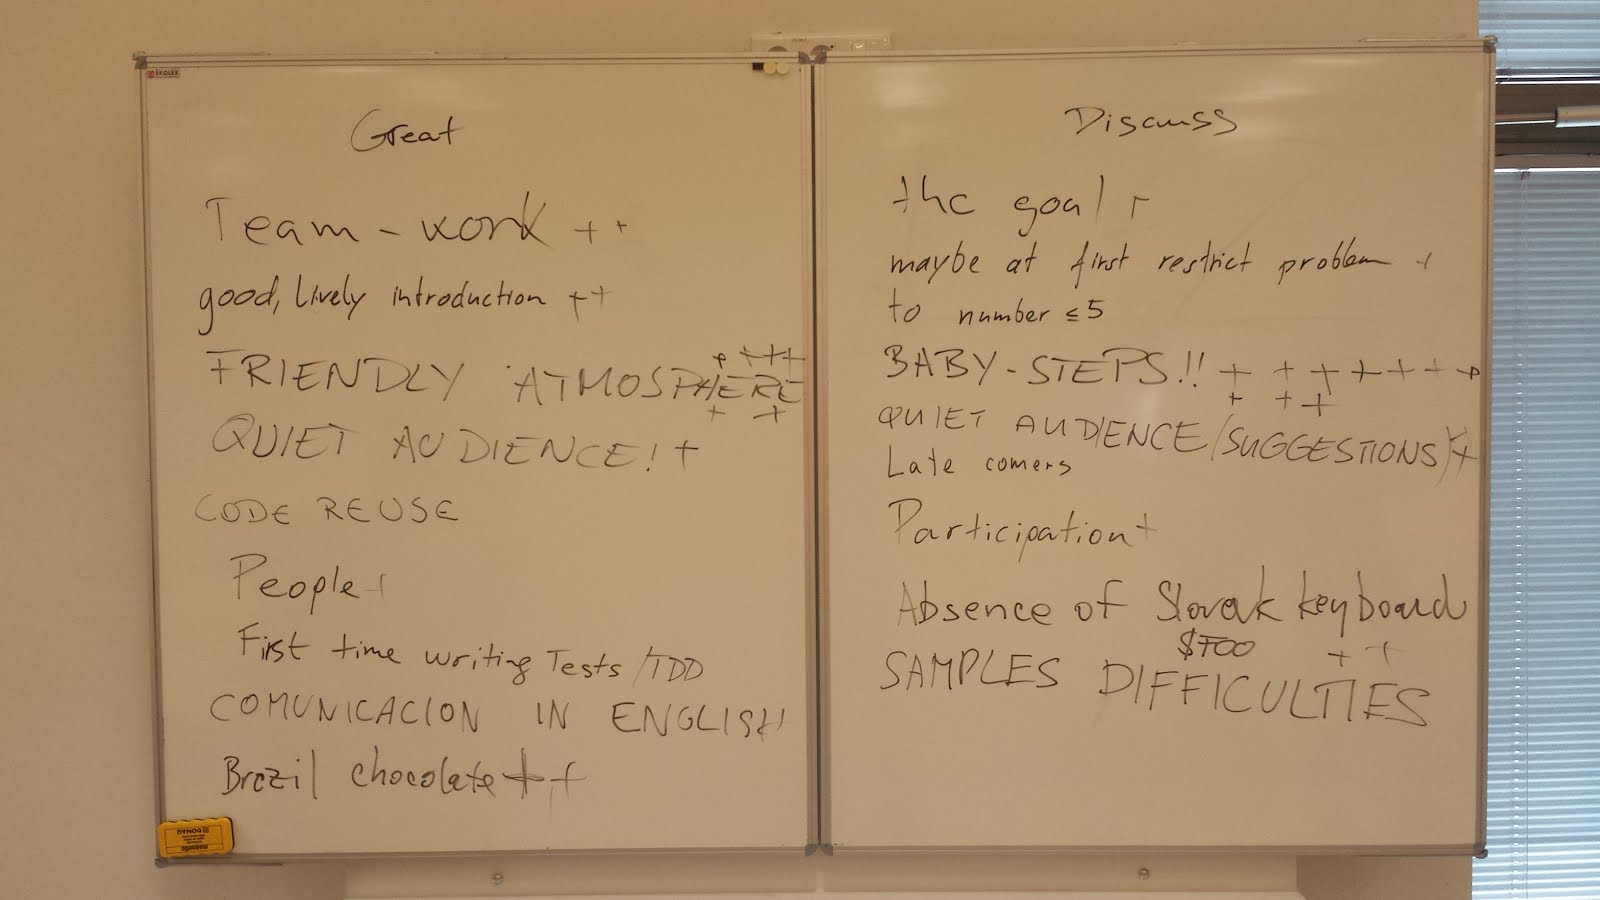 ŠKOLEX
Great
Team - work + +
good, lively introduction + +
++++
FRIENDLY ATMOSPHERE
+ +
QUIET AUDIENCE! +
CODE REUSE
People +
First time writing Tests/TDD
COMUNICACION IN ENGLISH
Brazil chocolate + +
Discuss
the goal +
maybe at first restrict problem +
to number ≤ 5
BABY-STEPS!! + + + + + + +
+ + +
QUIET AUDIENCE (SUGGESTIONS) +
Late comers
Participation +
Absence of Slovak keyboard
$FOO + +
SAMPLES DIFFICULTIES
DONAU